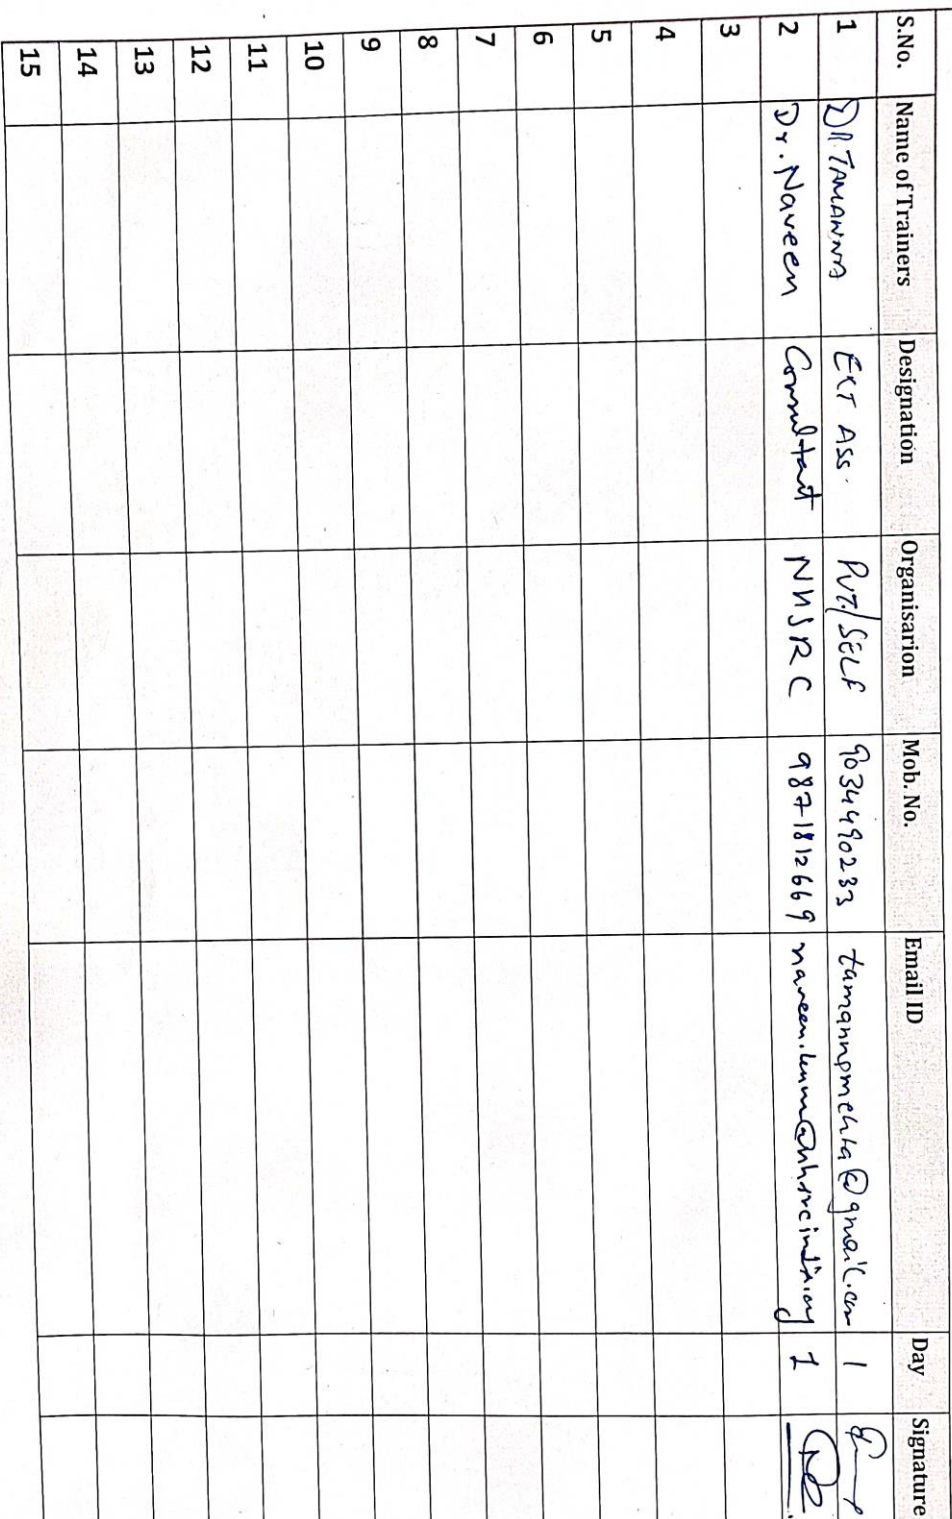 S.No. Name of Trainers Designation Organisarion Mob. No. Email ID Day Signature
1 DR. TAMANNA EXT ASS. PVT./SELF 9034490233 tamannamehta@gmail.com 1
2 Dr. Naveen Consultant NHSRC 9871812669 1
3
4
5
6
7
8
9
10
11
12
13
14
15